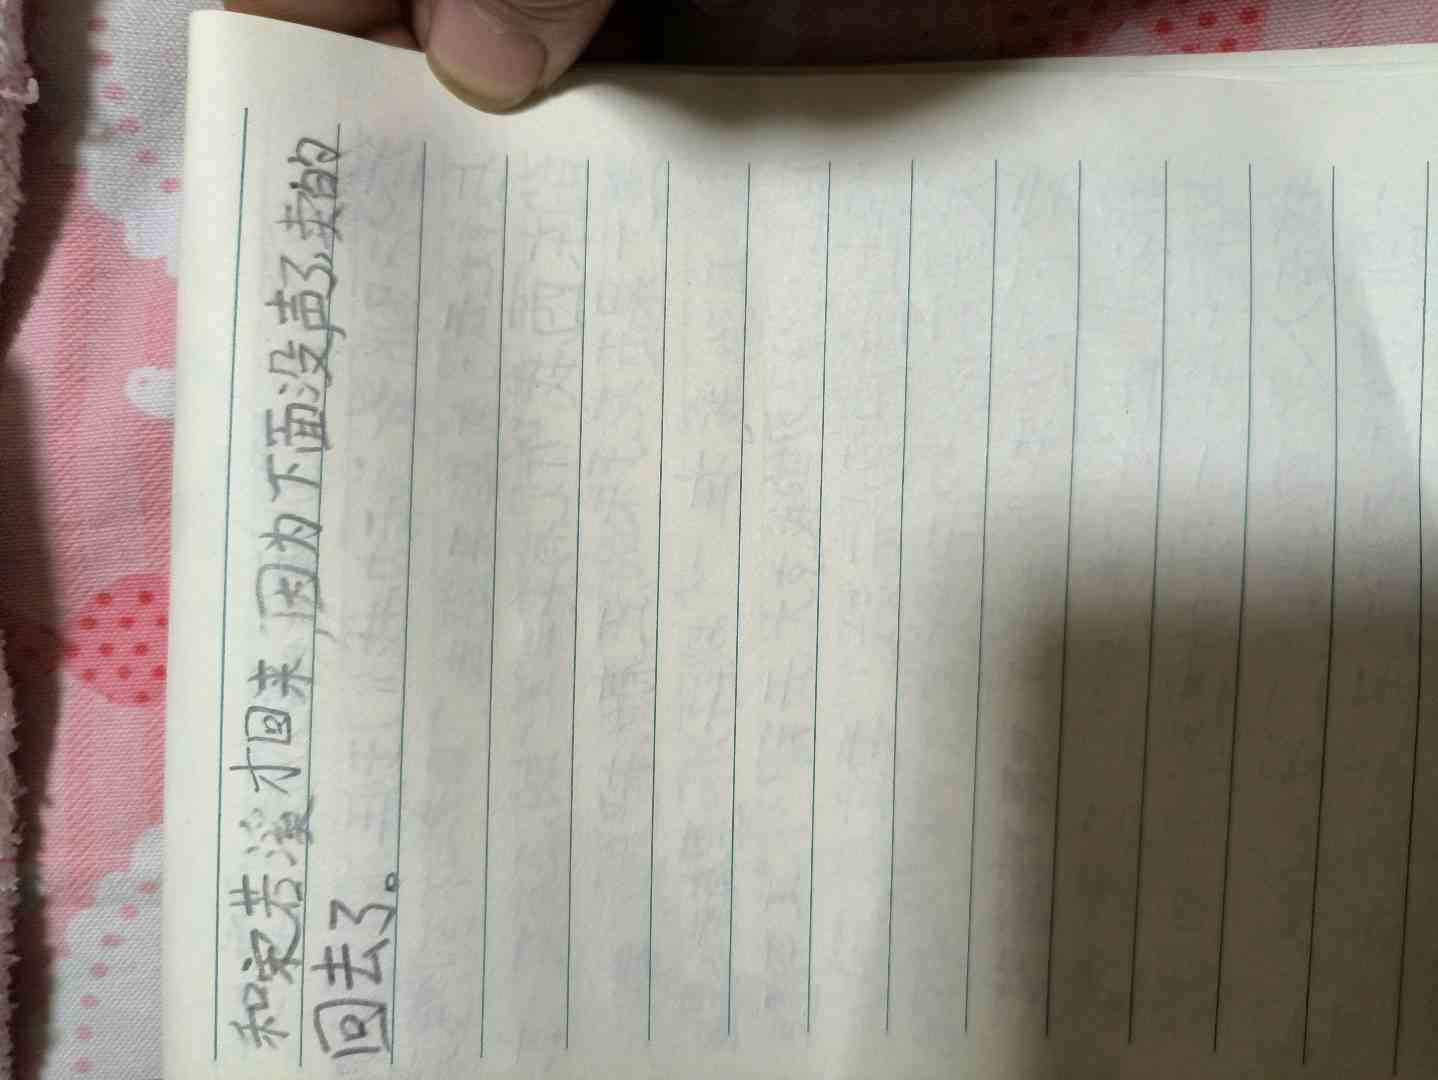 和宋若溪才回来因为下面没声了,卖的
回去了。